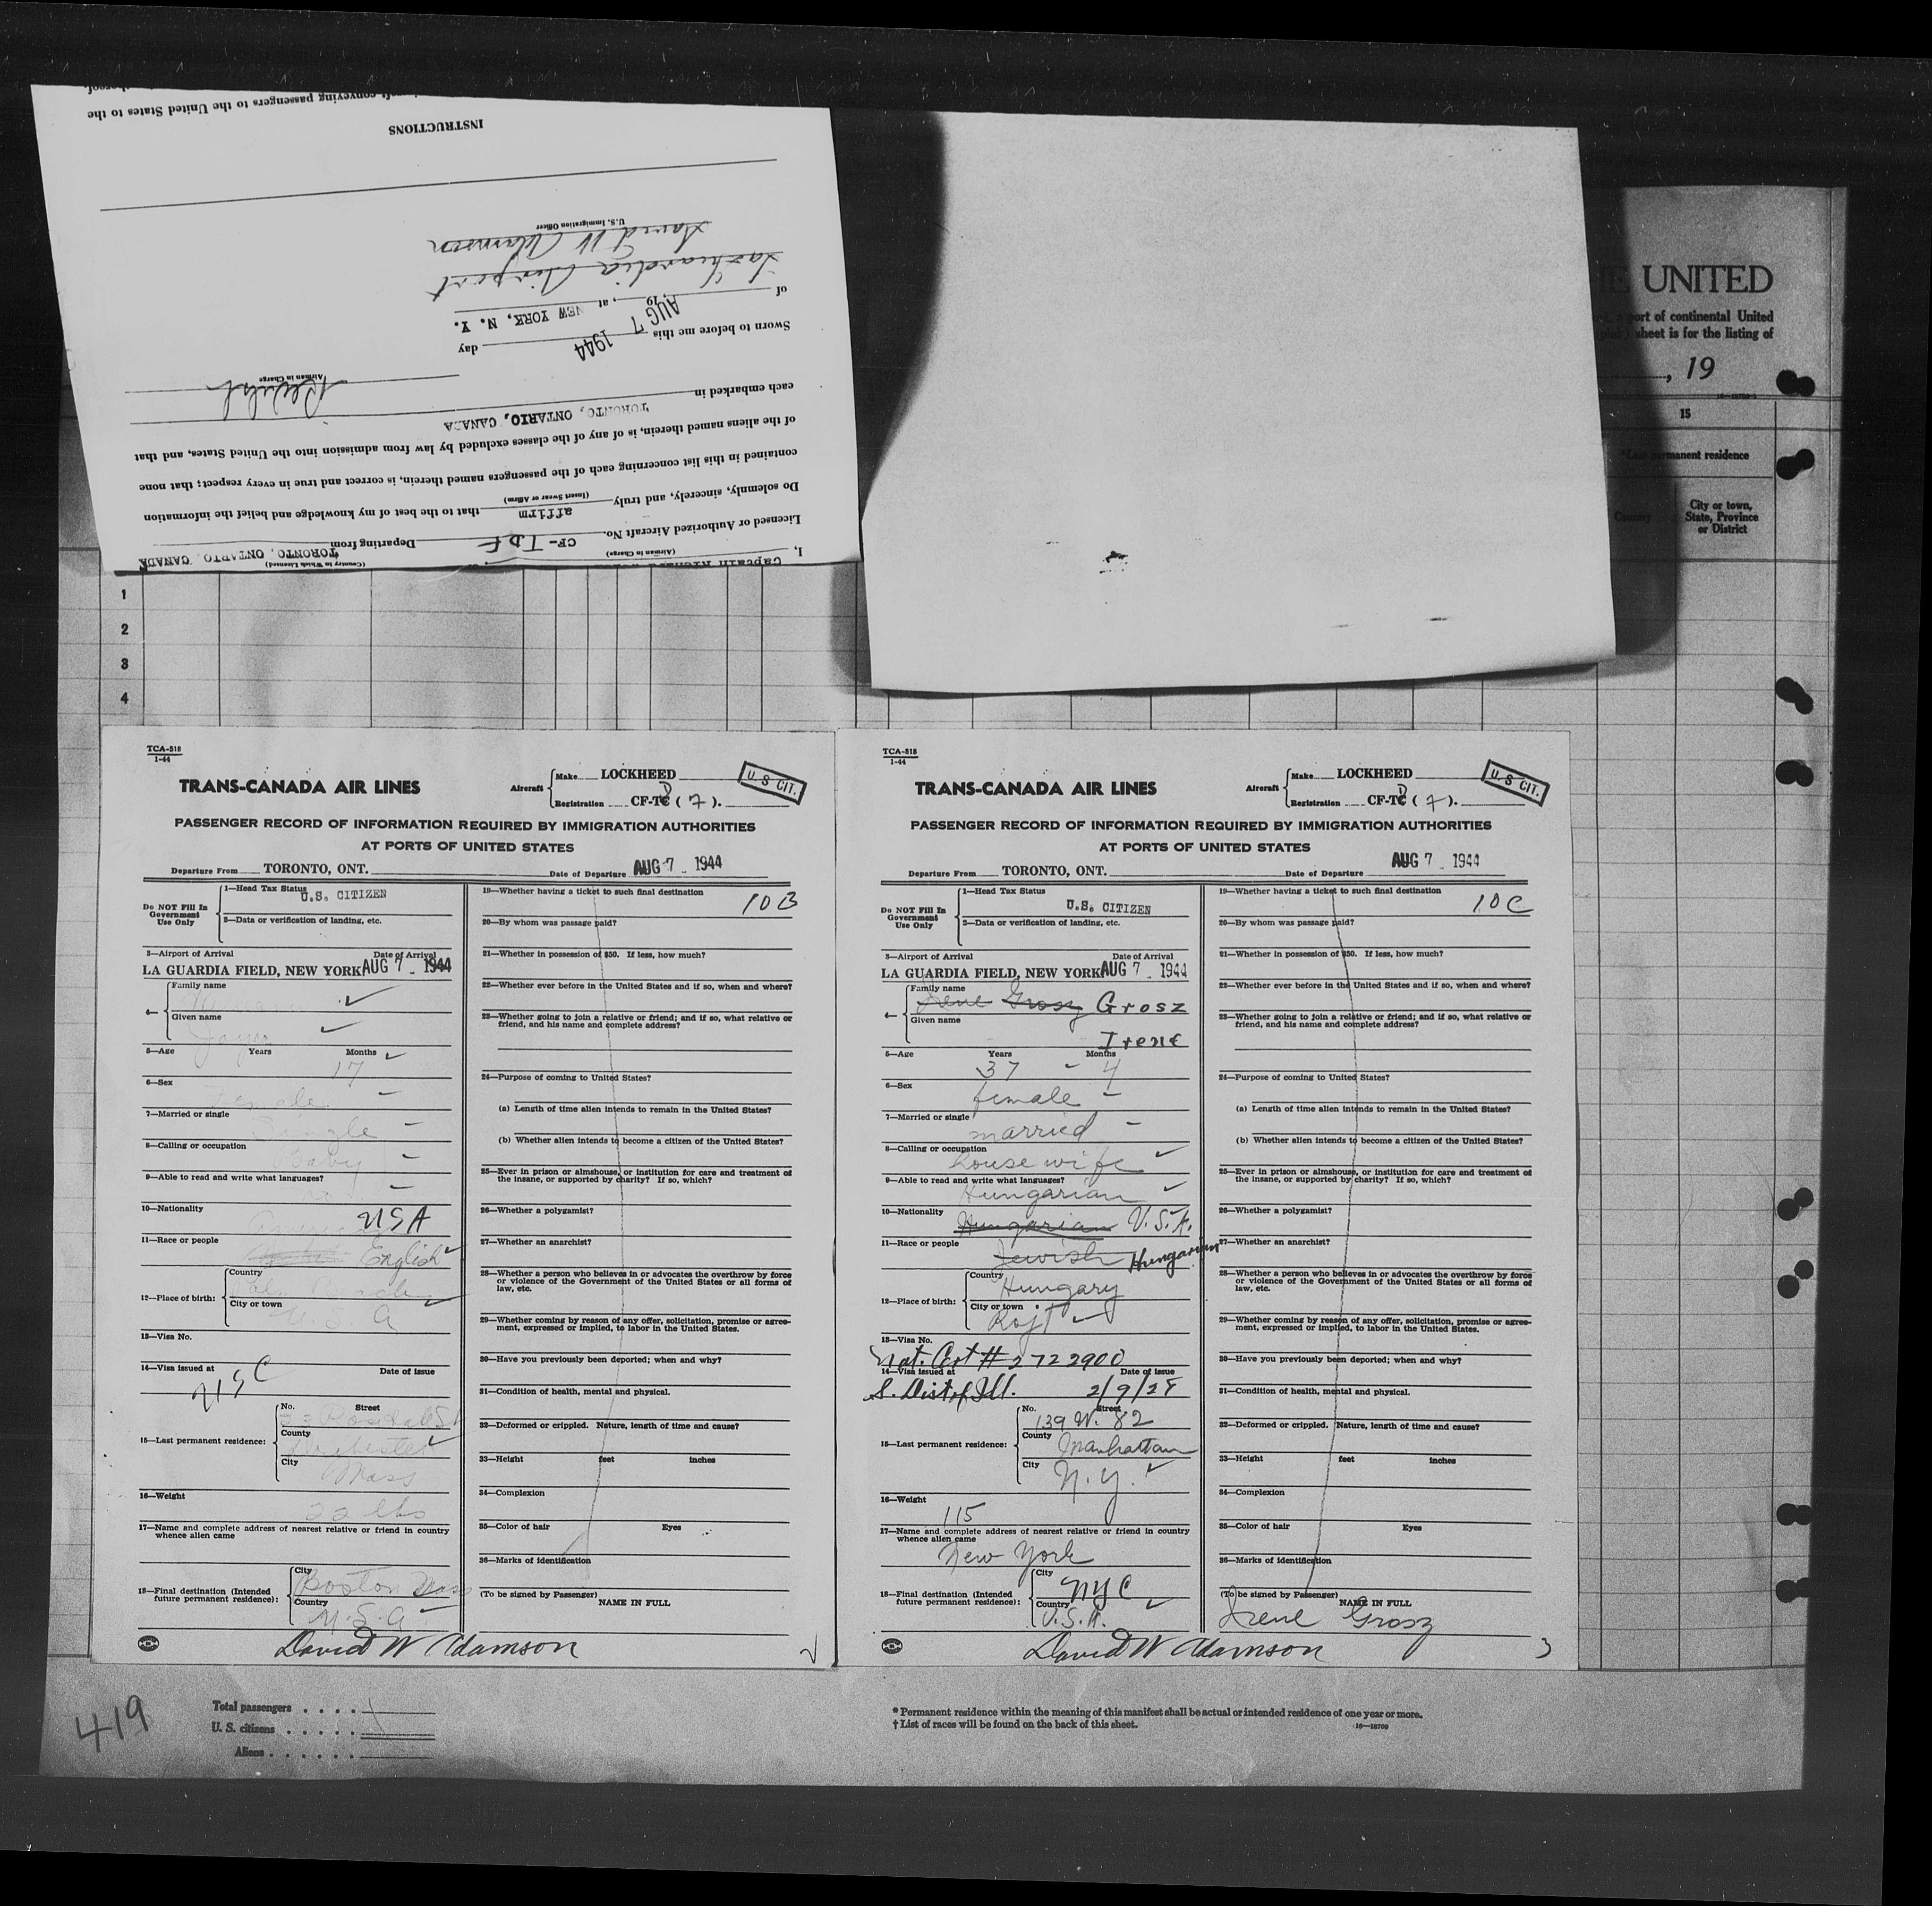 INSTRUCTIONS
conveying passengers to the United States to the
U.S. Immigration Officer
David W Adamson
LaGuardia Airport
of AUG 7, 19, at NEW YORK, N. Y.
Sworn to before me this 1944 day
Airman in Charge
each embarked in TORONTO, ONTARIO, CANADA
of the aliens named therein, is of any of the classes excluded by law from admission into the United States, and that
contained in this list concerning each of the passengers named therein, is correct and true in every respect; that none
Do solemnly, sincerely, and truly affirm that to the best of my knowledge and belief the information
(Insert Swear or Affirm)
Licensed or Authorized Aircraft No. CF-TDF Departing from TORONTO, ONTARIO, CANADA
(Airman in Charge) (Country in Which Licensed)
I, Captain
E UNITED
port of continental United
sheet is for the listing of
, 19
15
permanent residence
Country
City or town,
State, Province
or District
1
2
3
4
TCA-518
1-44
TRANS-CANADA AIR LINES
Aircraft
Make LOCKHEED
Registration CF-TD (7).
U.S CIT.
PASSENGER RECORD OF INFORMATION REQUIRED BY IMMIGRATION AUTHORITIES
AT PORTS OF UNITED STATES
Departure From TORONTO, ONT. Date of Departure AUG 7 - 1944
Do NOT Fill In
Government
Use Only
1—Head Tax Status
U.S. CITIZEN
2—Data or verification of landing, etc.
3—Airport of Arrival Date of Arrival
LA GUARDIA FIELD, NEW YORK AUG 7 - 1944
4— Family name
Given name
Joyce
5—Age Years Months
17
6—Sex
female
7—Married or single
single
8—Calling or occupation
baby
9—Able to read and write what languages?
10—Nationality
USA
11—Race or people
English
12—Place of birth: Country
City or town
U.S.A
13—Visa No.
14—Visa issued at Date of issue
USC
15—Last permanent residence: No. Street
Rosedale St
County
Dorchester
City
Mass
16—Weight
22 lbs
17—Name and complete address of nearest relative or friend in country
whence alien came
18—Final destination (Intended
future permanent residence):
City
Boston Mass
Country
U.S.A
19—Whether having a ticket to such final destination
10B
20—By whom was passage paid?
21—Whether in possession of $50. If less, how much?
22—Whether ever before in the United States and if so, when and where?
23—Whether going to join a relative or friend; and if so, what relative or
friend, and his name and complete address?
24—Purpose of coming to United States?
(a) Length of time alien intends to remain in the United States?
(b) Whether alien intends to become a citizen of the United States?
25—Ever in prison or almshouse, or institution for care and treatment of
the insane, or supported by charity? If so, which?
26—Whether a polygamist?
27—Whether an anarchist?
28—Whether a person who believes in or advocates the overthrow by force
or violence of the Government of the United States or all forms of
law, etc.
29—Whether coming by reason of any offer, solicitation, promise or agree-
ment, expressed or implied, to labor in the United States.
30—Have you previously been deported; when and why?
31—Condition of health, mental and physical.
32—Deformed or crippled. Nature, length of time and cause?
33—Height feet inches
34—Complexion
35—Color of hair Eyes
36—Marks of identification
(To be signed by Passenger)
NAME IN FULL
David W Adamson
2
TCA-518
1-44
TRANS-CANADA AIR LINES
Aircraft
Make LOCKHEED
Registration CF-TD (7).
U.S CIT.
PASSENGER RECORD OF INFORMATION REQUIRED BY IMMIGRATION AUTHORITIES
AT PORTS OF UNITED STATES
Departure From TORONTO, ONT. Date of Departure AUG 7 - 1944
Do NOT Fill In
Government
Use Only
1—Head Tax Status
U.S. CITIZEN
2—Data or verification of landing, etc.
3—Airport of Arrival Date of Arrival
LA GUARDIA FIELD, NEW YORK AUG 7 - 1944
4— Family name
Irene Grosz Grosz
Given name
Irene
5—Age Years Months
37 - 4
6—Sex
female
7—Married or single
married
8—Calling or occupation
housewife
9—Able to read and write what languages?
Hungarian
10—Nationality
Hungarian U.S.A.
11—Race or people
Jewish Hungarian
12—Place of birth: Country
Hungary
City or town
Rojt
13—Visa No.
Nat. Cert # 2722900
14—Visa issued at Date of issue
S. Dist of Ill. 2/9/28
15—Last permanent residence: No. Street
139 W. 82
County
Manhattan
City
N.Y.
16—Weight
115
17—Name and complete address of nearest relative or friend in country
whence alien came
New York
18—Final destination (Intended
future permanent residence):
City
NYC
Country
U.S.A.
19—Whether having a ticket to such final destination
10C
20—By whom was passage paid?
21—Whether in possession of $50. If less, how much?
22—Whether ever before in the United States and if so, when and where?
23—Whether going to join a relative or friend; and if so, what relative or
friend, and his name and complete address?
24—Purpose of coming to United States?
(a) Length of time alien intends to remain in the United States?
(b) Whether alien intends to become a citizen of the United States?
25—Ever in prison or almshouse, or institution for care and treatment of
the insane, or supported by charity? If so, which?
26—Whether a polygamist?
27—Whether an anarchist?
28—Whether a person who believes in or advocates the overthrow by force
or violence of the Government of the United States or all forms of
law, etc.
29—Whether coming by reason of any offer, solicitation, promise or agree-
ment, expressed or implied, to labor in the United States.
30—Have you previously been deported; when and why?
31—Condition of health, mental and physical.
32—Deformed or crippled. Nature, length of time and cause?
33—Height feet inches
34—Complexion
35—Color of hair Eyes
36—Marks of identification
(To be signed by Passenger)
NAME IN FULL
Irene Grosz
David W Adamson
3
419
Total passengers . . . .
U. S. citizens . . . . .
Aliens . . . . . .
* Permanent residence within the meaning of this manifest shall be actual or intended residence of one year or more.
† List of races will be found on the back of this sheet.